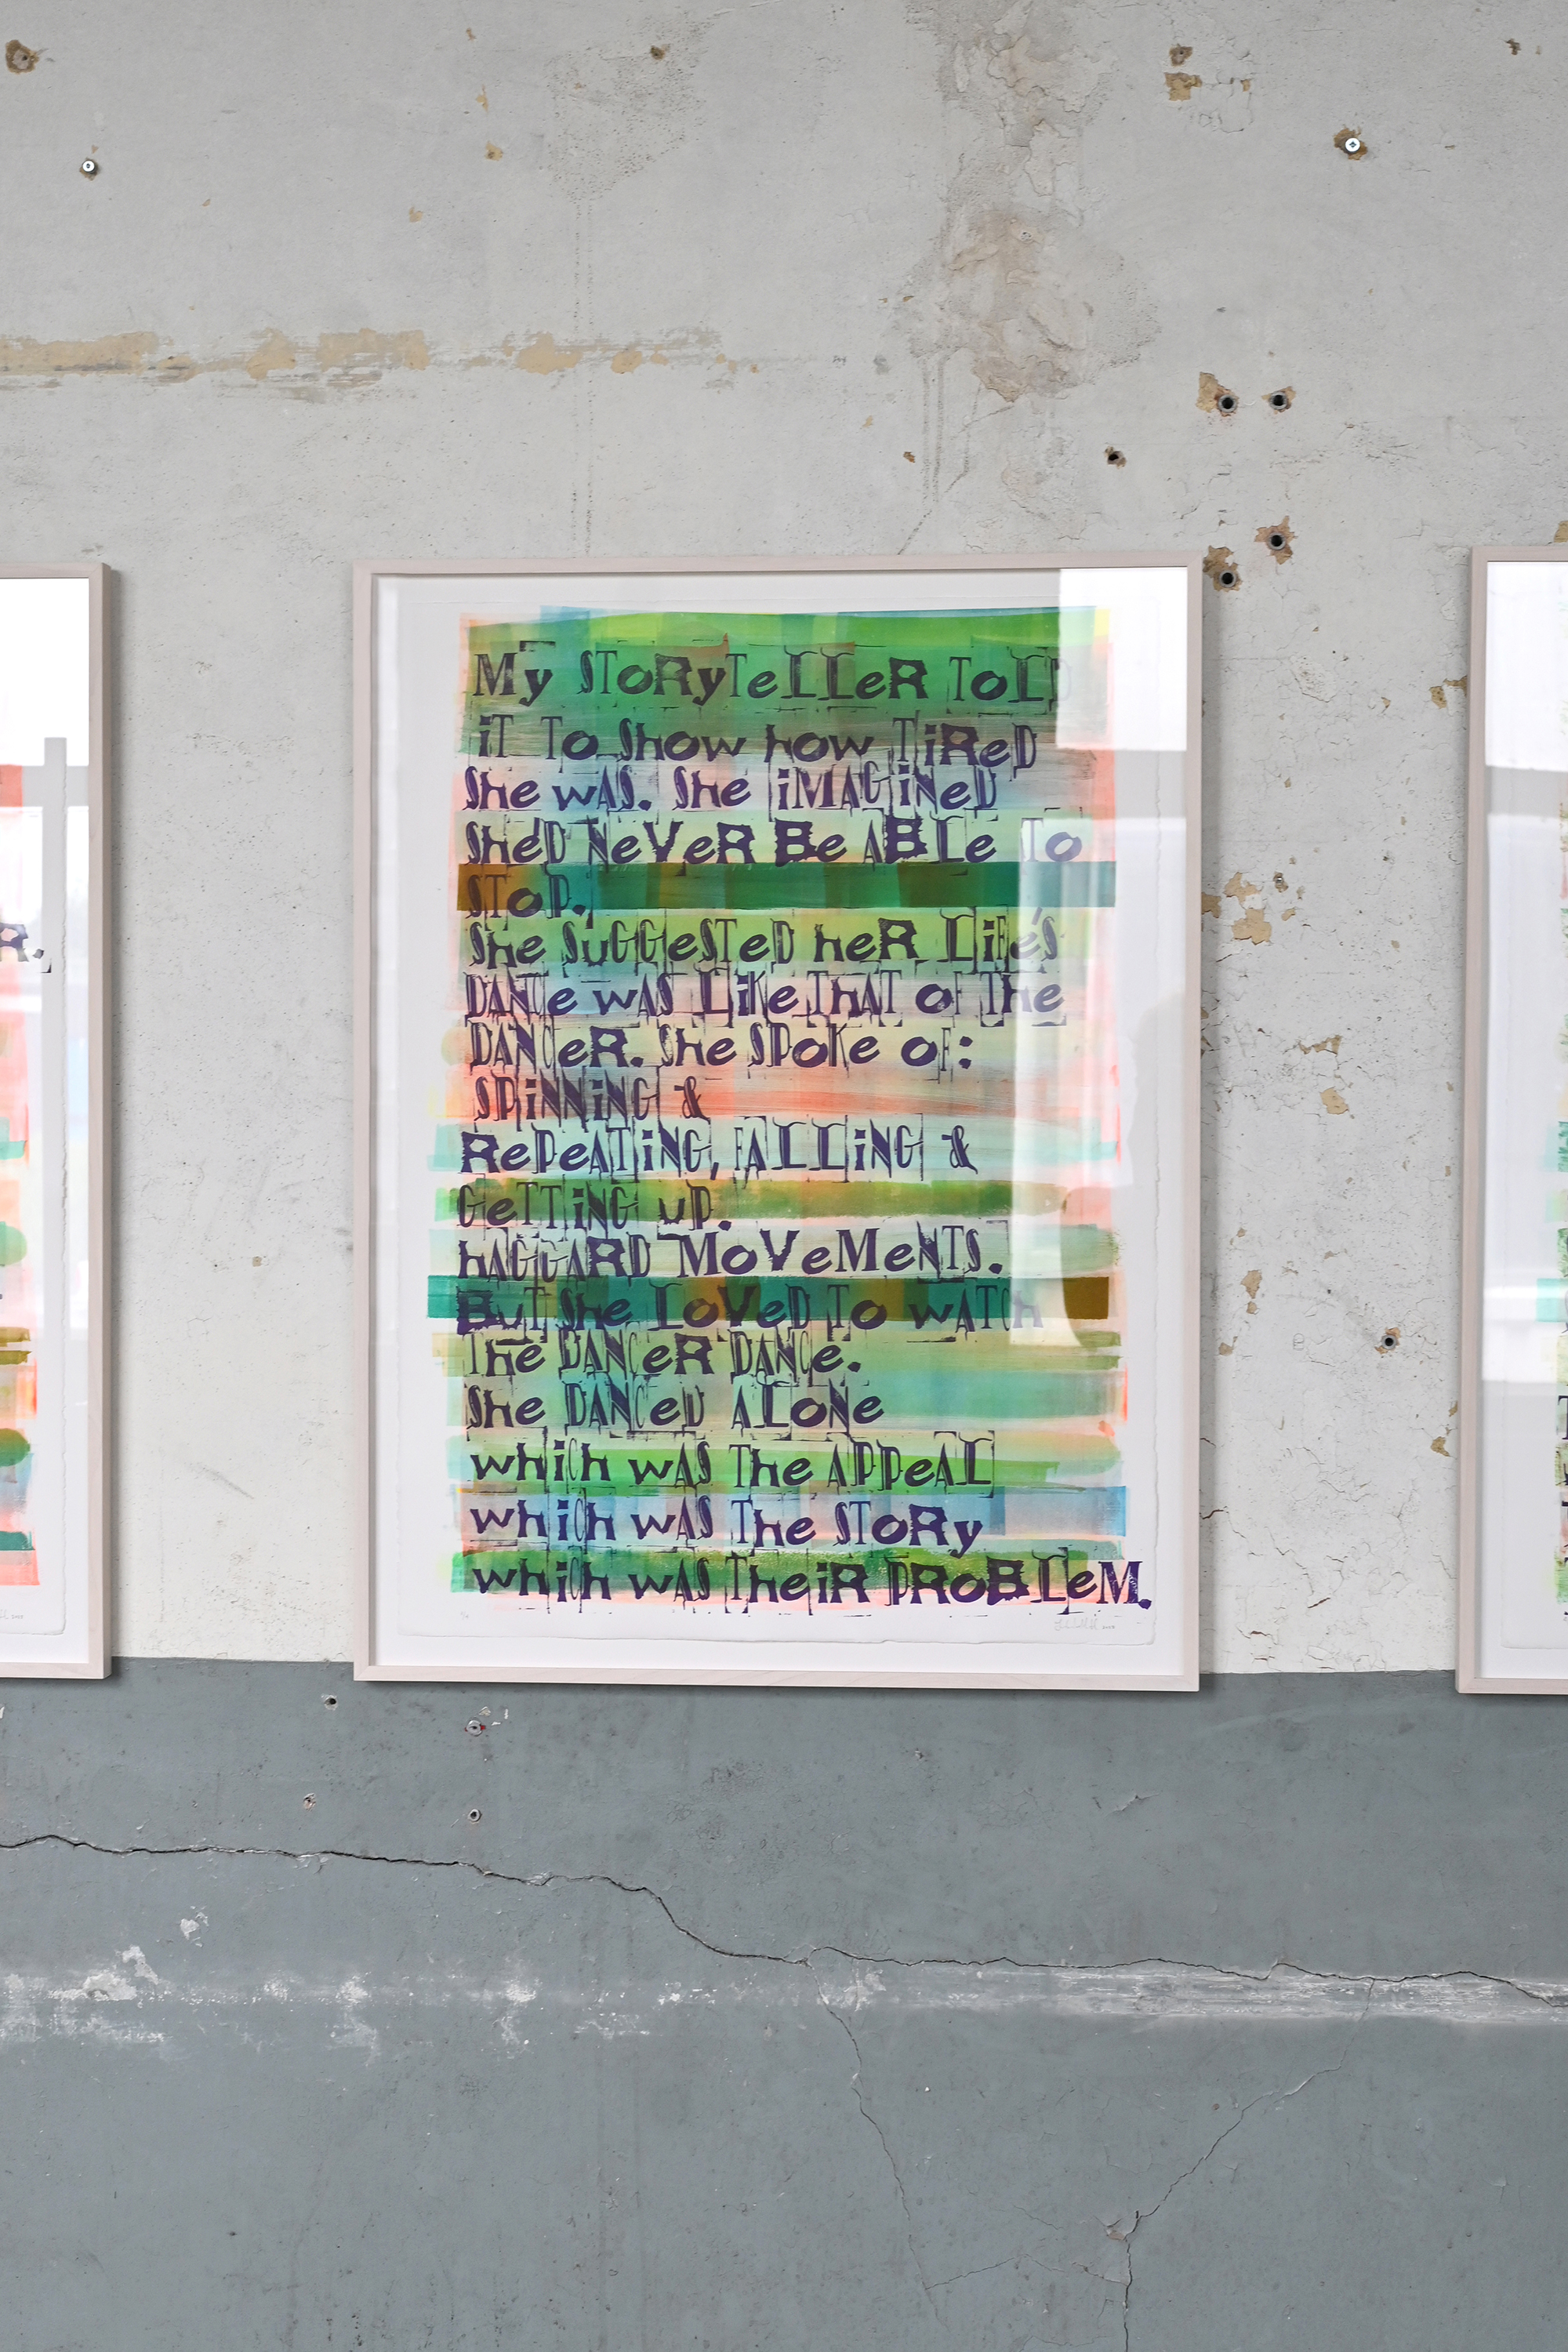 My SToRyTeLLeR ToLD
iT To Show how TiReD
She wAS. She iMAGiNeD
She'D NeVeR Be ABLe To
SToP.
She SuGGeSTeD heR LiFe'S
DANCe wAS LiKe ThAT oF The
DANCeR. She SPoKe oF:
SPiNNiNG &
RePeATiNG, FALLiNG &
GeTTiNG uP.
hAGGARD MoVeMeNTS.
BuT She LoVeD To wATCh
The DANCeR DANCe.
She DANCeD ALoNe
which wAS The APPeAL
which wAS The SToRy
which wAS TheiR PRoBLeM.
R.